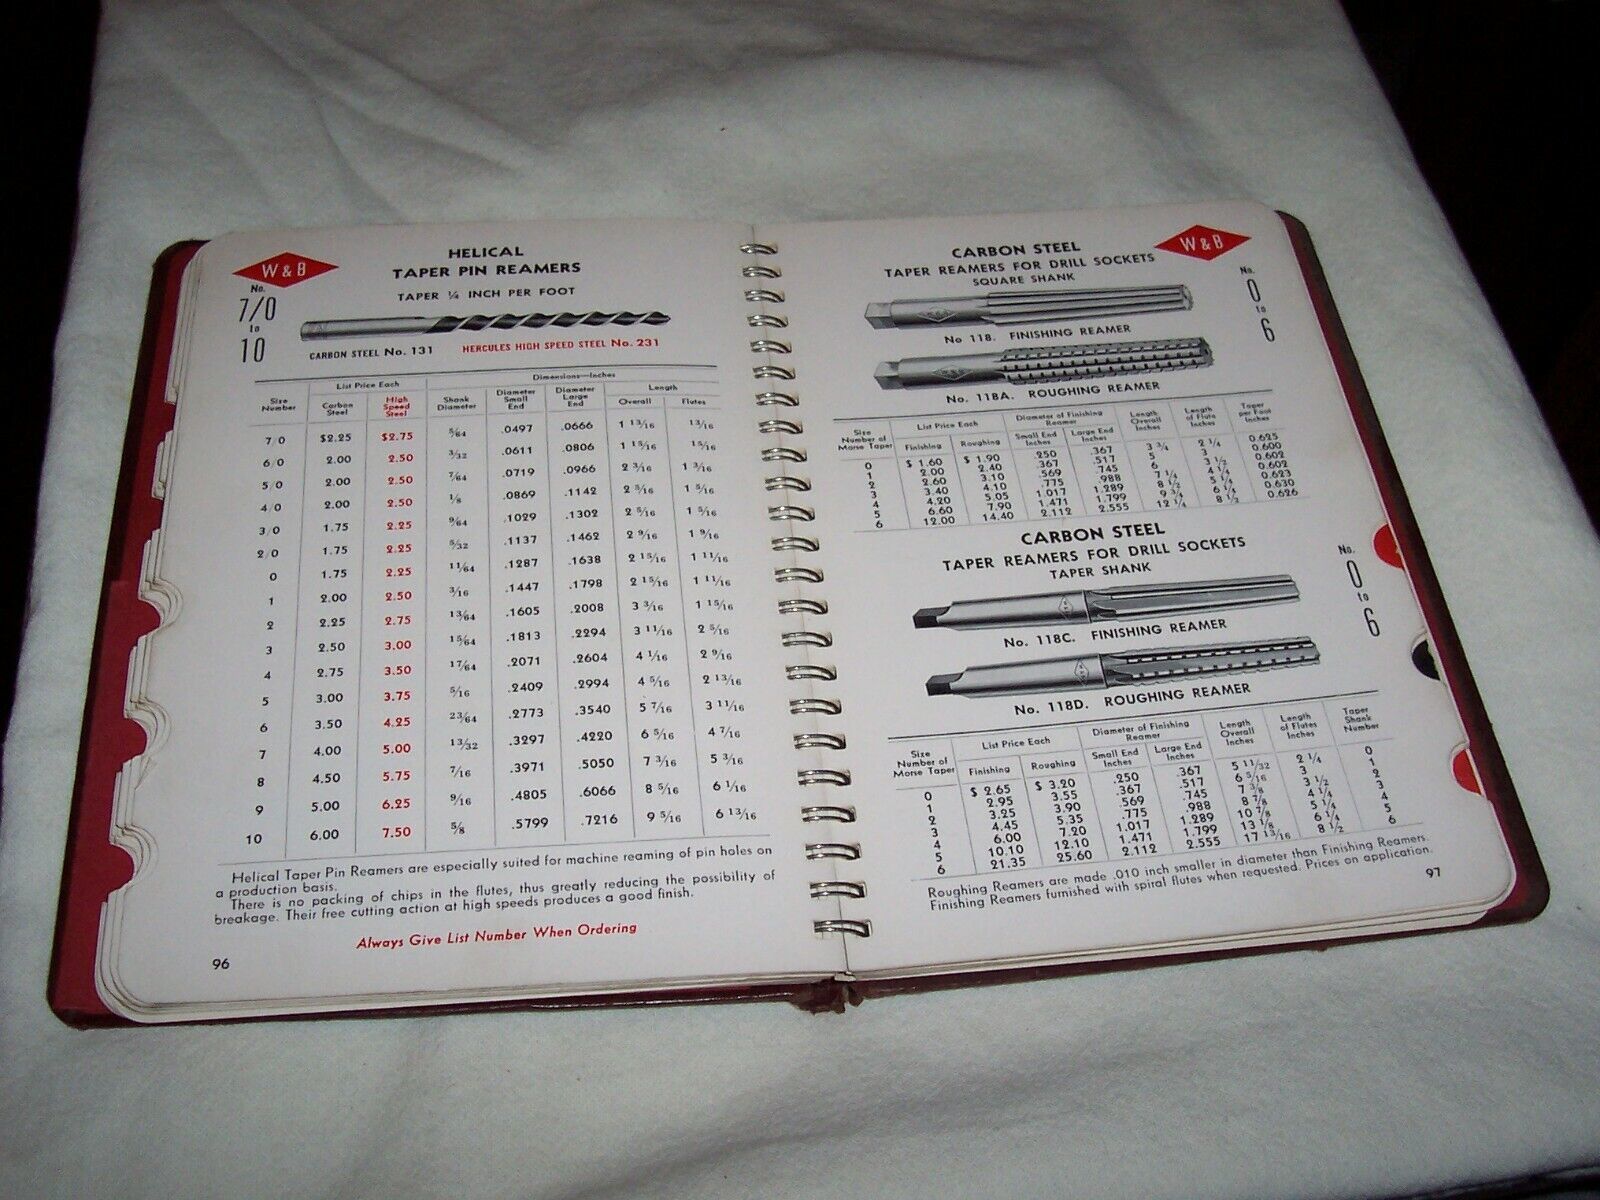 W & B
No.
7/0
to
10
HELICAL
TAPER PIN REAMERS
TAPER ¼ INCH PER FOOT
CARBON STEEL No. 131 HERCULES HIGH SPEED STEEL No. 231
Size Number | List Price Each: Carbon Steel | High Speed Steel | Dimensions—Inches: Shank Diameter | Diameter Small End | Diameter Large End | Length: Overall | Flutes
7/0 $2.25 $2.75 5/64 .0497 .0666 1 13/16 13/16
6/0 2.00 2.50 3/32 .0611 .0806 1 15/16 15/16
5/0 2.00 2.50 7/64 .0719 .0966 2 3/16 1 3/16
4/0 2.00 2.50 1/8 .0869 .1142 2 5/16 1 5/16
3/0 1.75 2.25 9/64 .1029 .1302 2 5/16 1 5/16
2/0 1.75 2.25 5/32 .1137 .1462 2 9/16 1 9/16
0 1.75 2.25 11/64 .1287 .1638 2 15/16 1 11/16
1 2.00 2.50 3/16 .1447 .1798 2 15/16 1 11/16
2 2.25 2.75 13/64 .1605 .2008 3 3/16 1 15/16
3 2.50 3.00 15/64 .1813 .2294 3 11/16 2 5/16
4 2.75 3.50 17/64 .2071 .2604 4 1/16 2 9/16
5 3.00 3.75 5/16 .2409 .2994 4 5/16 2 13/16
6 3.50 4.25 23/64 .2773 .3540 5 7/16 3 11/16
7 4.00 5.00 13/32 .3297 .4220 6 5/16 4 7/16
8 4.50 5.75 7/16 .3971 .5050 7 3/16 5 3/16
9 5.00 6.25 9/16 .4805 .6066 8 5/16 6 1/16
10 6.00 7.50 5/8 .5799 .7216 9 5/16 6 13/16
Helical Taper Pin Reamers are especially suited for machine reaming of pin holes on
a production basis.
There is no packing of chips in the flutes, thus greatly reducing the possibility of
breakage. Their free cutting action at high speeds produces a good finish.
Always Give List Number When Ordering
96
CARBON STEEL
TAPER REAMERS FOR DRILL SOCKETS
SQUARE SHANK
W & B
No.
0
to
6
No 118. FINISHING REAMER
No. 118A. ROUGHING REAMER
Size Number of Morse Taper | List Price Each: Finishing | Roughing | Diameter of Finishing Reamer: Small End Inches | Large End Inches | Length Overall Inches | Length of Flute Inches | Taper per Foot Inches
0 $ 1.60 $ 1.90 .250 .367 3 3/4 2 1/4 0.625
1 2.00 2.40 .367 .517 5 3 0.600
2 2.60 3.10 .569 .745 6 3 1/2 0.602
3 3.40 4.10 .775 .988 7 1/4 4 1/4 0.602
4 4.20 5.05 1.017 1.289 8 1/2 5 1/4 0.623
5 6.60 7.90 1.471 1.799 9 3/4 6 1/4 0.630
6 12.00 14.40 2.112 2.555 12 1/4 8 1/2 0.626
CARBON STEEL
TAPER REAMERS FOR DRILL SOCKETS
TAPER SHANK
No.
0
to
6
No. 118C. FINISHING REAMER
No. 118D. ROUGHING REAMER
Size Number of Morse Taper | List Price Each: Finishing | Roughing | Diameter of Finishing Reamer: Small End Inches | Large End Inches | Length Overall Inches | Length of Flutes Inches | Taper Shank Number
0 $ 2.65 $ 3.20 .250 .367 5 11/32 2 1/4 0
1 2.95 3.55 .367 .517 6 5/16 3 1
2 3.25 3.90 .569 .745 7 3/8 3 1/2 2
3 4.45 5.35 .775 .988 8 7/8 4 1/4 3
4 6.00 7.20 1.017 1.289 10 7/8 5 1/4 4
5 10.10 12.10 1.471 1.799 13 1/8 6 1/4 5
6 21.35 25.60 2.112 2.555 17 13/16 8 1/2 6
Roughing Reamers are made .010 inch smaller in diameter than Finishing Reamers.
Finishing Reamers furnished with spiral flutes when requested. Prices on application.
97